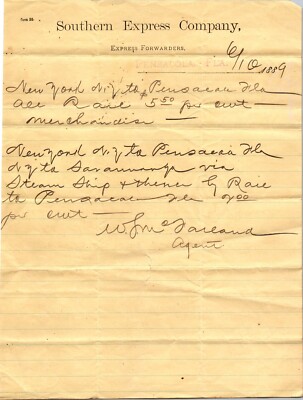 Southern Express Company,
Express Forwarders.
6/10 1889
New York N.Y to Pensacola Fla
all Rail 5.50 pr cwt —
merchandise —
New York N.Y to Pensacola Fla
N.Y to Savannah via
Steam Ship & thence by Rail
to Pensacola Fla
pr cwt —
W J McFarland
Agent